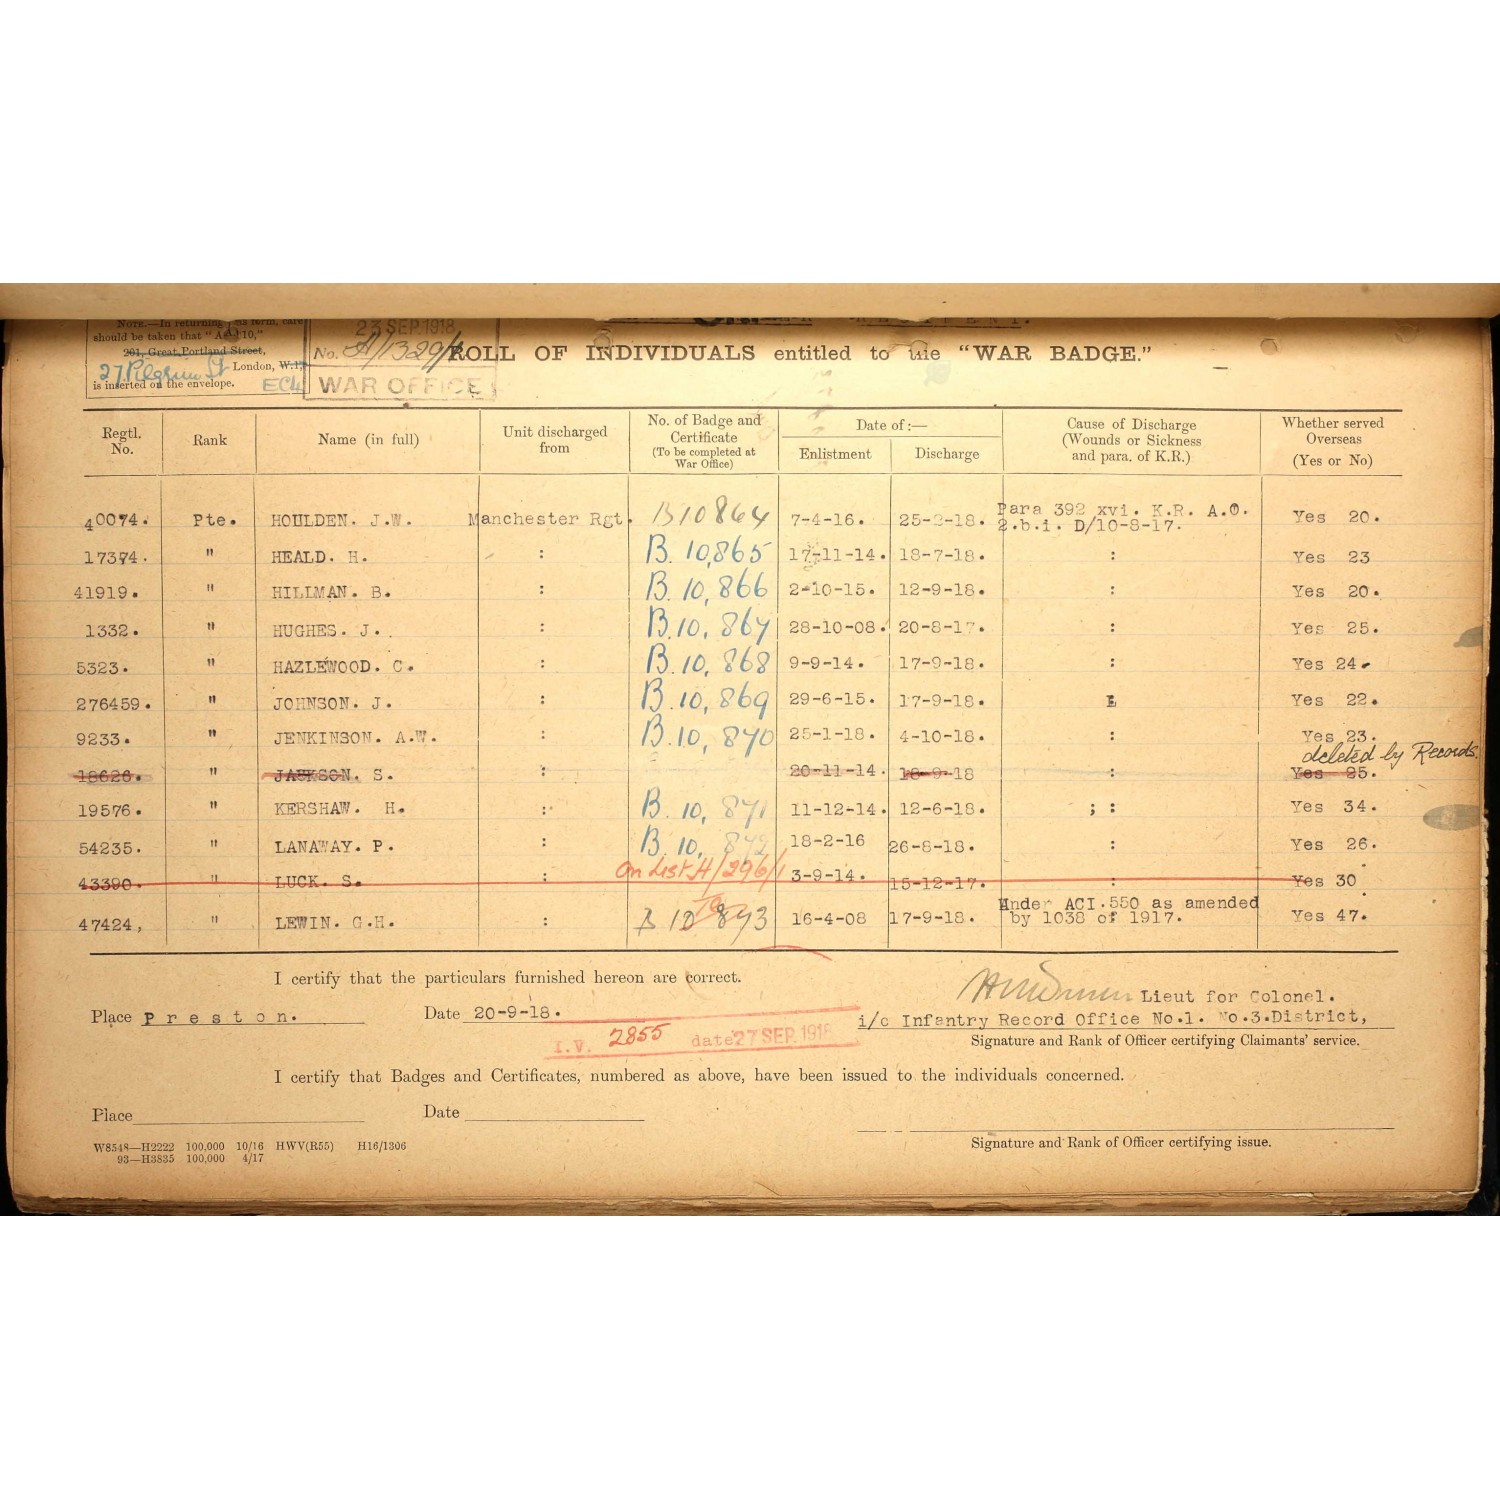 NOTE.—In returning this form, care
should be taken that "A.G.10,"
201, Great Portland Street,
27 Pilgrim St London, W.1,
is inserted on the envelope. EC4
23 SEP. 1918
No. A/1329/1
WAR OFFICE
ROLL OF INDIVIDUALS entitled to the "WAR BADGE."
Regtl. No. Rank Name (in full) Unit discharged from No. of Badge and Certificate (To be completed at War Office) Date of:— Enlistment Discharge Cause of Discharge (Wounds or Sickness and para. of K.R.) Whether served Overseas (Yes or No)
40074. Pte. HOULDEN. J.W. Manchester Rgt. B10864 7-4-16. 25-2-18. Para 392 xvi. K.R. A.O. 2.b.i. D/10-8-17. Yes 20.
17374. " HEALD. H. : B. 10,865 17-11-14. 18-7-18. : Yes 23
41919. " HILLMAN. B. : B. 10,866 2-10-15. 12-9-18. : Yes 20.
1332. " HUGHES. J. : B. 10,867 28-10-08. 20-8-17. : Yes 25.
5323. " HAZLEWOOD. C. : B. 10,868 9-9-14. 17-9-18. : Yes 24.
276459. " JOHNSON. J. : B. 10,869 29-6-15. 17-9-18. Yes 22.
9233. " JENKINSON. A.W. : B. 10,870 25-1-18. 4-10-18. : Yes 23.
deleted by Records.
18626. " JACKSON. S. : 20-11-14. 18-9-18 : Yes 25.
19576. " KERSHAW. H. : B. 10,871 11-12-14. 12-6-18. ; : Yes 34.
54235. " LANAWAY. P. : B. 10,872 18-2-16 26-8-18. : Yes 26.
43390. " LUCK. S. : On List H/296/1 3-9-14. 15-12-17. : Yes 30
47424, " LEWIN. G.H. : B 10 873 16-4-08 17-9-18. Under ACI.550 as amended by 1038 of 1917. Yes 47.
I certify that the particulars furnished hereon are correct.
Lieut for Colonel.
Place Preston. Date 20-9-18. i/c Infantry Record Office No.1. No.3.District,
I.V. 2855 date 27 SEP. 1918
Signature and Rank of Officer certifying Claimants' service.
I certify that Badges and Certificates, numbered as above, have been issued to the individuals concerned.
Place Date
Signature and Rank of Officer certifying issue.
W8548—H2222 100,000 10/16 HWV(R55) H16/1306
93—H3835 100,000 4/17